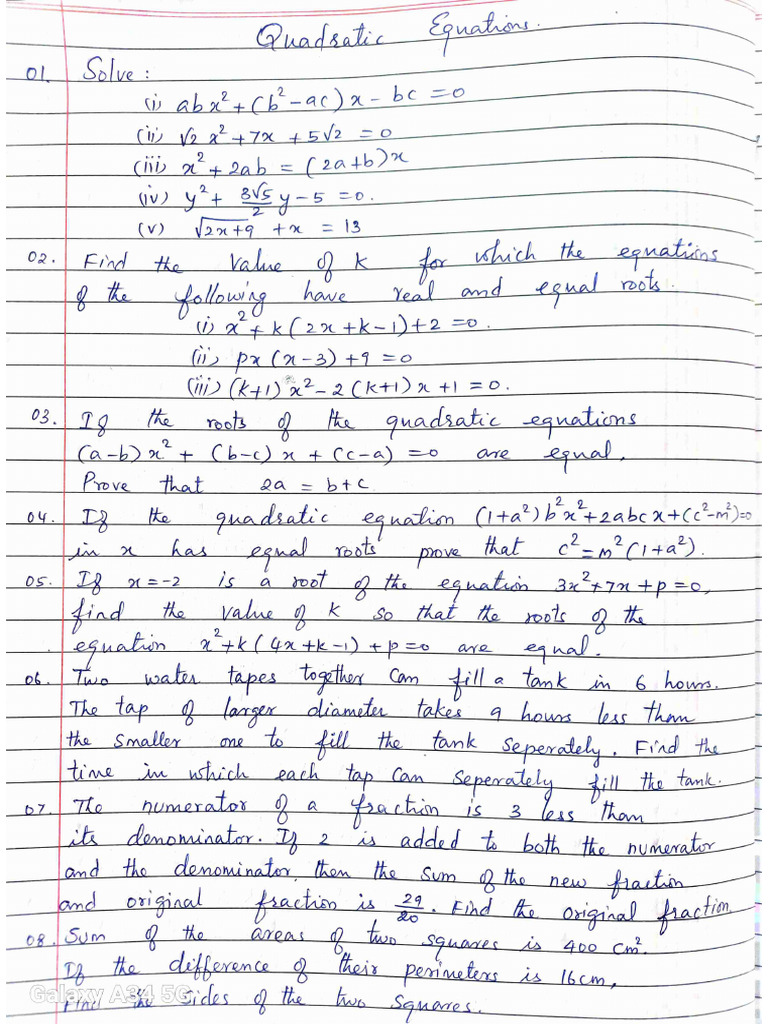 Quadratic Equations.
01. Solve :
(i) abx² + (b² - ac) x - bc = 0
(ii) √2 x² + 7x + 5√2 = 0
(iii) x² + 2ab = (2a+b)x
(iv) y² + 3√5/2 y - 5 = 0.
(v) √2x+9 + x = 13
02. Find the value of k for which the equations
of the following have real and equal roots.
(i) x² + k(2x+k-1)+2 = 0.
(ii) px(x-3)+9 = 0
(iii) (k+1) x² - 2(k+1)x + 1 = 0.
03. If the roots of the quadratic equations
(a-b)x² + (b-c)x + (c-a) = 0 are equal,
Prove that 2a = b+c.
04. If the quadratic equation (1+a²)b²x²+2abcx+(c²-m²)=0
in x has equal roots prove that c²=m²(1+a²).
05. If x=-2 is a root of the equation 3x²+7x+p=0,
find the value of k so that the roots of the
equation x²+k(4x+k-1)+p=0 are equal.
06. Two water tapes together can fill a tank in 6 hours.
The tap of larger diameter takes 9 hours less than
the smaller one to fill the tank seperately. Find the
time in which each tap can seperately fill the tank.
07. The numerator of a fraction is 3 less than
its denominator. If 2 is added to both the numerator
and the denominator, then the sum of the new fraction
and original fraction is 29/20. Find the original fraction.
08. Sum of the areas of two squares is 400 cm².
If the difference of their perimeters is 16cm,
Find the sides of the two squares.
Galaxy A34 5G